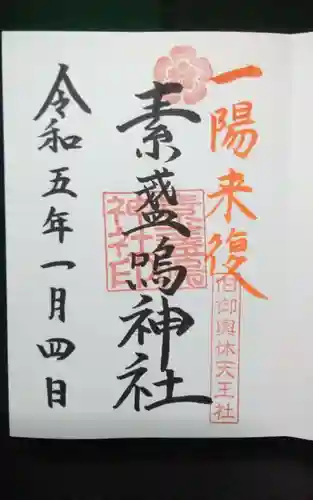 一陽来復
旧御輿休天王社
素盞嗚神社
素盞嗚
神社印
令和五年一月四日